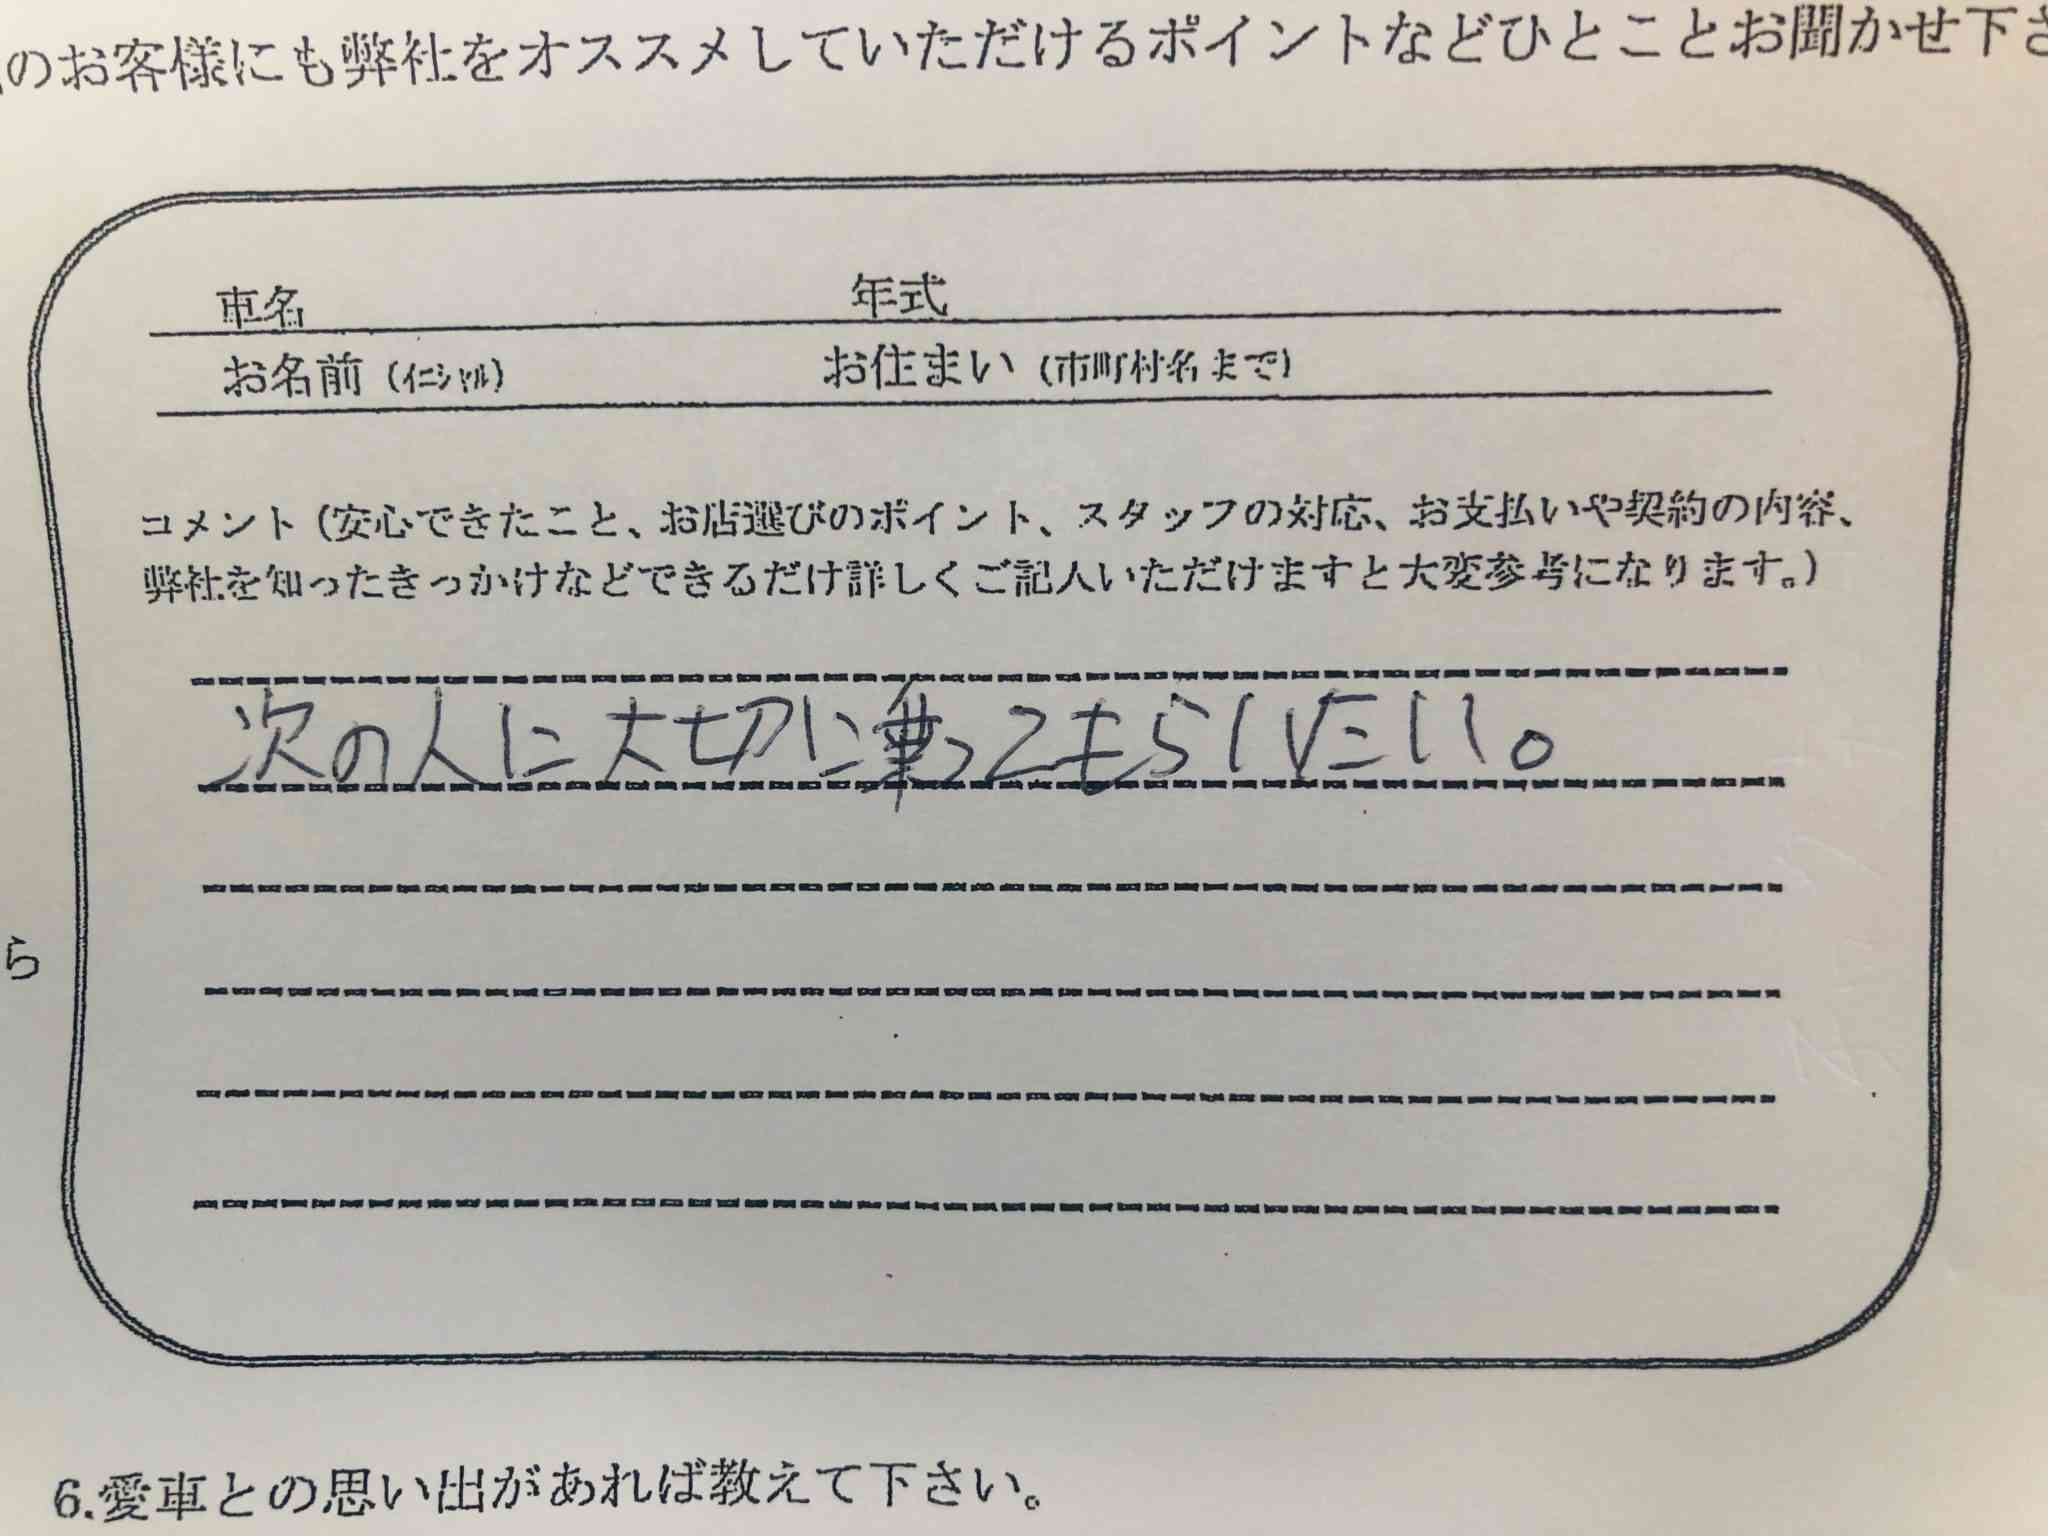 のお客様にも弊社をオススメしていただけるポイントなどひとことお聞かせ下さ
車名 年式
お名前（イニシャル） お住まい（市町村名まで）
コメント（安心できたこと、お店選びのポイント、スタッフの対応、お支払いや契約の内容、
弊社を知ったきっかけなどできるだけ詳しくご記入いただけますと大変参考になります。）
次の人に大切に乗ってもらいたい。
ら
6.愛車との思い出があれば教えて下さい。